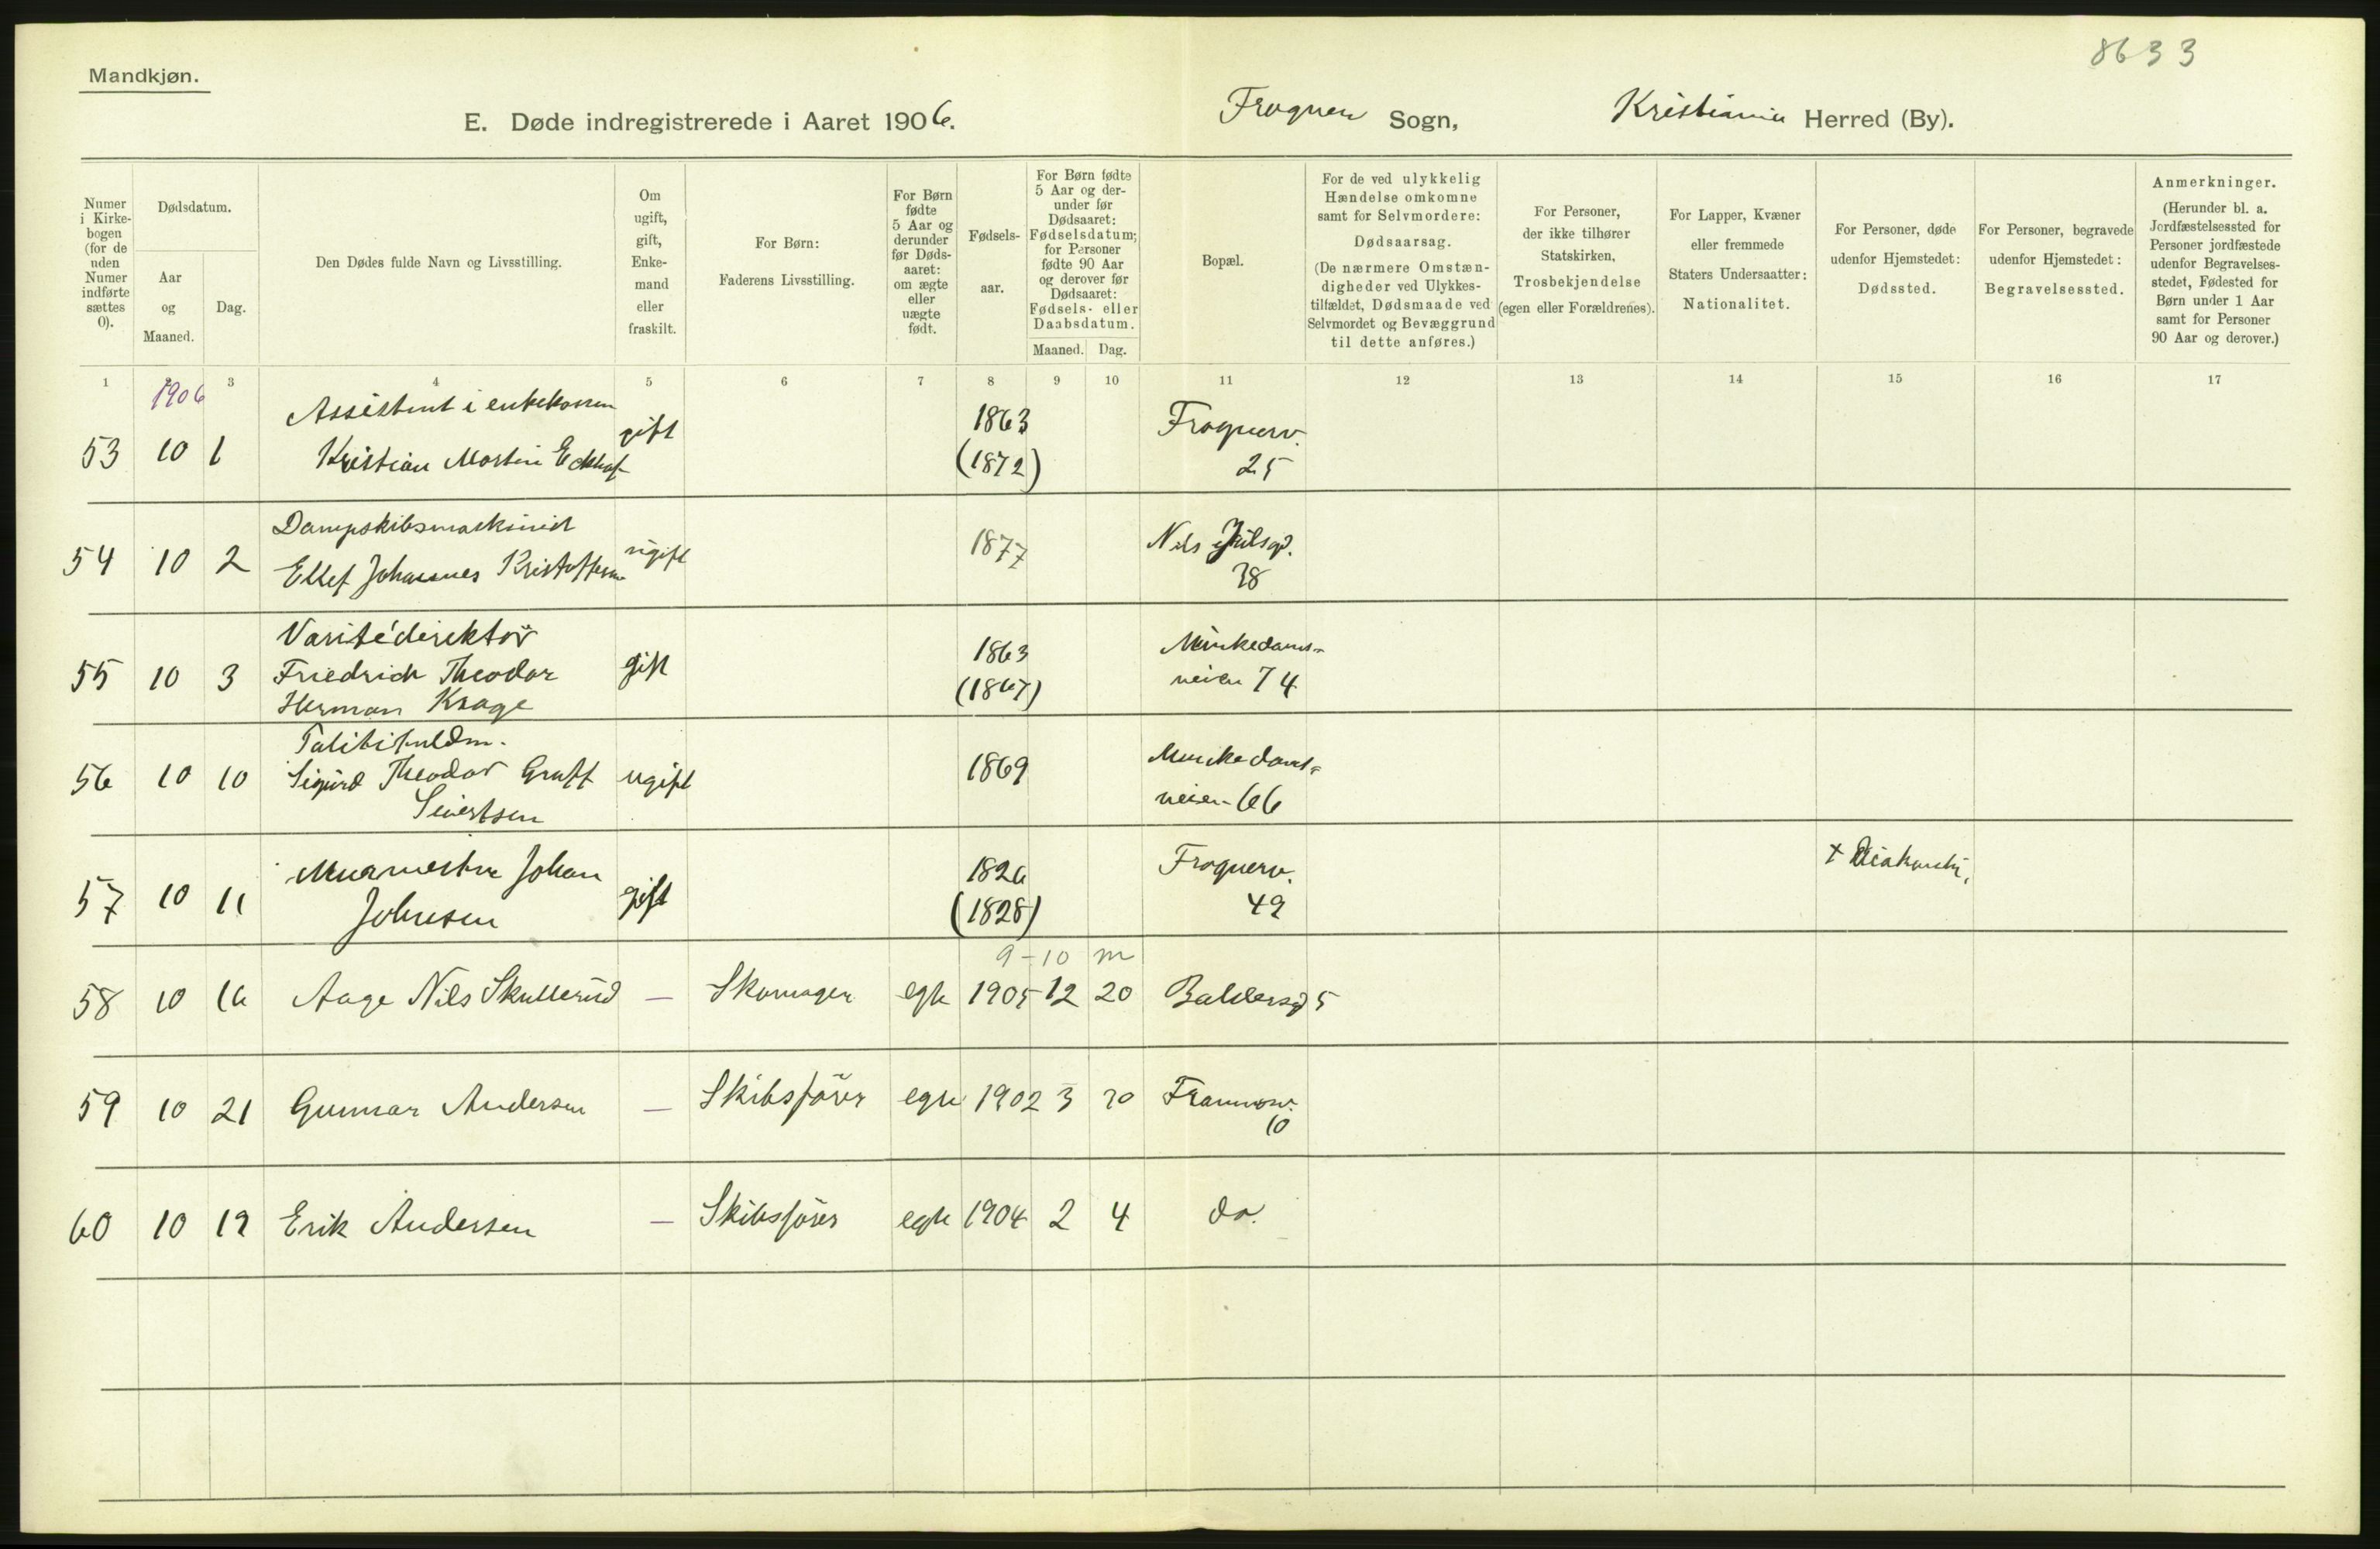 8633
Mandkjøn.
E. Døde indregistrerede i Aaret 1906.
Frogner Sogn,
Kristiania Herred (By).
Numer
i Kirke-
bogen
(for de
uden
Numer
indførte
sættes
0).
Dødsdatum.
Aar
og
Maaned.
Dag.
Den Dødes fulde Navn og Livsstilling.
Om
ugift,
gift,
Enke-
mand
eller
fraskilt.
For Børn:
Faderens Livsstilling.
For Børn
fødte
5 Aar og
derunder
før Døds-
aaret:
om ægte
eller
uægte
født.
Fødsels-
aar.
For Børn fødte
5 Aar og der-
under før
Dødsaaret:
Fødselsdatum;
for Personer
fødte 90 Aar
og derover før
Dødsaaret:
Fødsels- eller
Daabsdatum.
Maaned. Dag.
Bopæl.
For de ved ulykkelig
Hændelse omkomne
samt for Selvmordere:
Dødsaarsag.
(De nærmere Omstæn-
digheder ved Ulykkes-
tilfældet, Dødsmaade ved
Selvmordet og Bevæggrund
til dette anføres.)
For Personer,
der ikke tilhører
Statskirken,
Trosbekjendelse
(egen eller Forældrenes).
For Lapper, Kvæner
eller fremmede
Staters Undersaatter:
Nationalitet.
For Personer, døde
udenfor Hjemstedet:
Dødssted.
For Personer, begravede
udenfor Hjemstedet:
Begravelsessted.
Anmerkninger.
(Herunder bl. a.
Jordfæstelsessted for
Personer jordfæstede
udenfor Begravelses-
stedet, Fødested for
Børn under 1 Aar
samt for Personer
90 Aar og derover.)
1 3 4 5 6 7 8 9 10 11 12 13 14 15 16 17
1906
Assistent i enkekassen
53 10 1 Kristian Martin gift 1863 Frognerv.
(1872) 25
Dampskibsmaskinist
54 10 2 Ellef Johannes Kristoffersen ugift 1877 Nils Juelsgd.
38
Varitédirektör
55 10 3 Friedrich Theodor gift 1863 Munkedams-
Herman Krage (1867) veien 74
Politifuldm.
56 10 10 Sigurd Theodor Graff ugift 1869 Munkedams-
Sivertsen veien 66
57 10 11 Murmester Johan gift 1826 Frognerv. + Diakonhj.
Johnsen (1828) 49
9-10 m
58 10 16 Aage Nils Skullerud — Skomager egte 1905 12 20 Baldersgd 5
59 10 21 Gunnar Andersen — Skibsförer egte 1902 3 30
10
60 10 19 Erik Andersen — Skibsförer egte 1904 2 4 do.